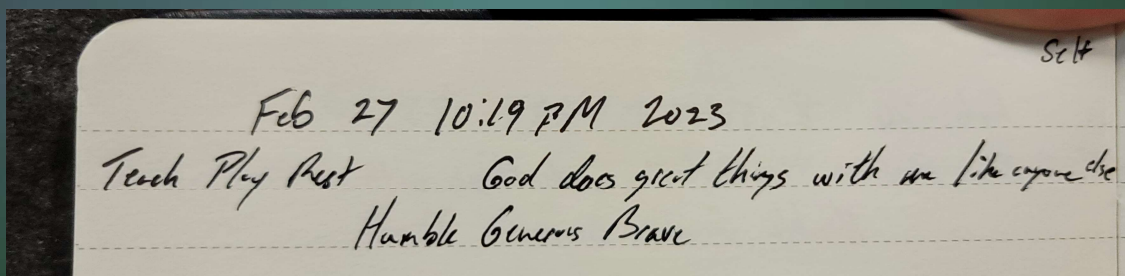 Self
Feb 27 10:19 PM 2023
Teach Play Rest God does great things with me like anyone else
Humble Generous Brave